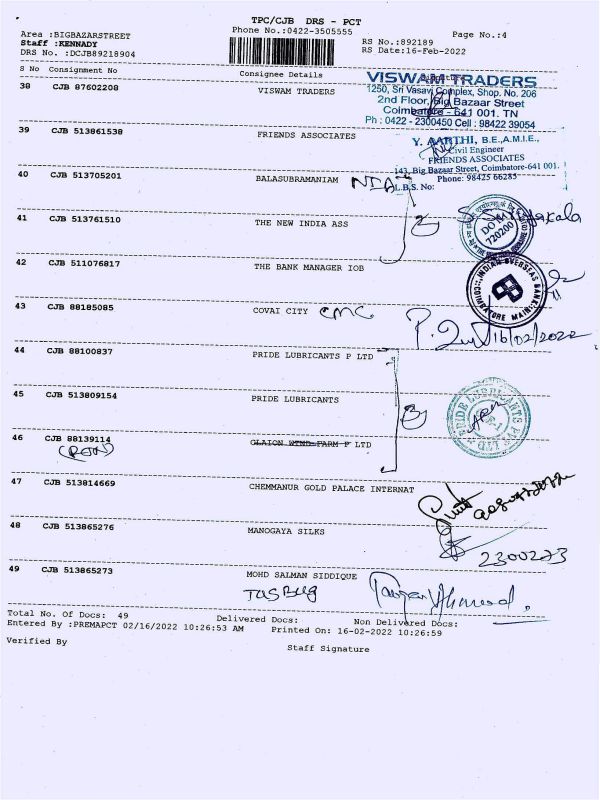 TPC/CJB DRS - PCT
Area :BIGBAZARSTREET
Phone No.:0422-3505555
Page No.:4
Staff :KENNADY
RS No.:892189
DRS No. :DCJB89218904
RS Date:16-Feb-2022
S No Consignment No Consignee Details Signature
38 CJB 87602208 VISWAM TRADERS
VISWAM TRADERS
1250, Sri Vasavi Complex, Shop. No. 206
2nd Floor, Big Bazaar Street
Coimbatore - 641 001. TN
Ph : 0422 - 2300450 Cell : 98422 39054
39 CJB 513861538 FRIENDS ASSOCIATES
Y. AARTHI, B.E.,A.M.I.E.,
Civil Engineer
FRIENDS ASSOCIATES
143, Big Bazaar Street, Coimbatore-641 001.
Phone: 98425 66285
L.B.S. No:
40 CJB 513705201 BALASUBRAMANIAM NIA
41 CJB 513761510 THE NEW INDIA ASS
2
720200
42 CJB 511076817 THE BANK MANAGER IOB
INDIAN OVERSEAS BANK
COIMBATORE MAIN
43 CJB 88185085 COVAI CITY CMC
16/02/2022
44 CJB 88100837 PRIDE LUBRICANTS P LTD
45 CJB 513809154 PRIDE LUBRICANTS
3
PRIDE LUBRICANTS PVT LTD
46 CJB 88139114 GLAION WIND FARM P LTD
47 CJB 513814669 CHEMMANUR GOLD PALACE INTERNAT
48 CJB 513865276 MANOGAYA SILKS
2300273
49 CJB 513865273 MOHD SALMAN SIDDIQUE
Total No. Of Docs: 49 Delivered Docs: Non Delivered Docs:
Entered By :PREMAPCT 02/16/2022 10:26:53 AM Printed On: 16-02-2022 10:26:59
Verified By
Staff Signature